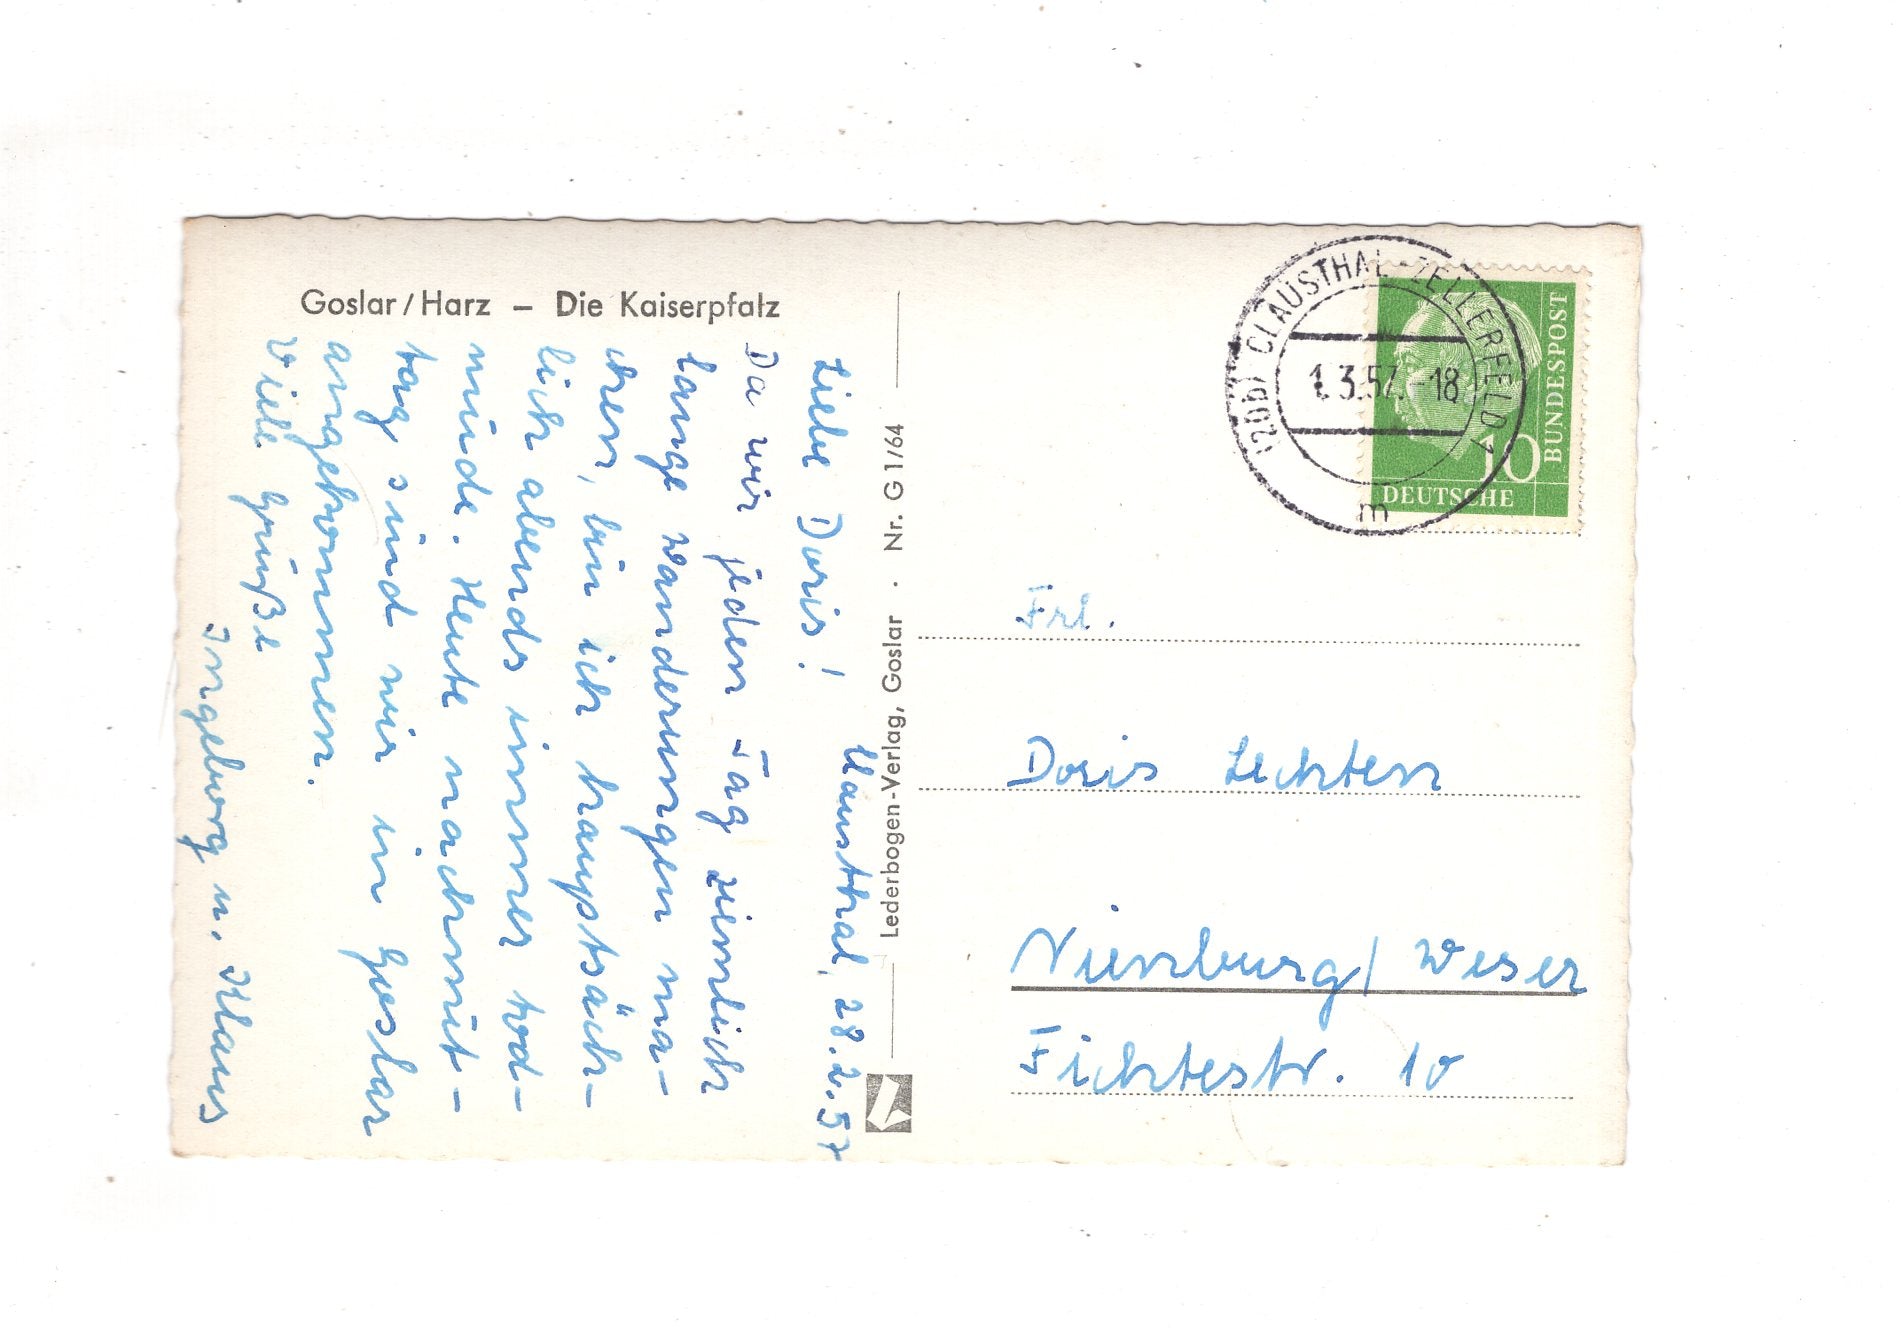 Goslar/Harz – Die Kaiserpfalz
Clausthal, 28.2.57
Liebe Doris!
Da wir jeden Tag ziemlich
lange Wanderungen ma-
chen, bin ich hauptsäch-
lich abends immer tod-
müde. Heute nachmit-
tag sind wir in Goslar
angekommen.
Viele Grüße
Ingeborg u. Klaus
Lederbogen-Verlag, Goslar · Nr. G 1/64
(20b) CLAUSTHAL-ZELLERFELD 1
1.3.57.-18
m
10
DEUTSCHE
BUNDESPOST
Frl.
Doris Lechten
Nienburg/Weser
Fichtestr. 10